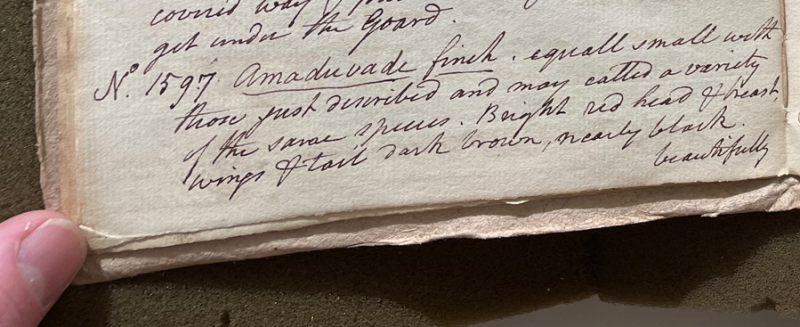 covered way
get under the Goard.
No. 1597 Amaduvade finch. equall small with
those just discribed and may called a variety
of the same species. Bright red head & breast,
wings & tail dark brown, nearly black.
beautifully